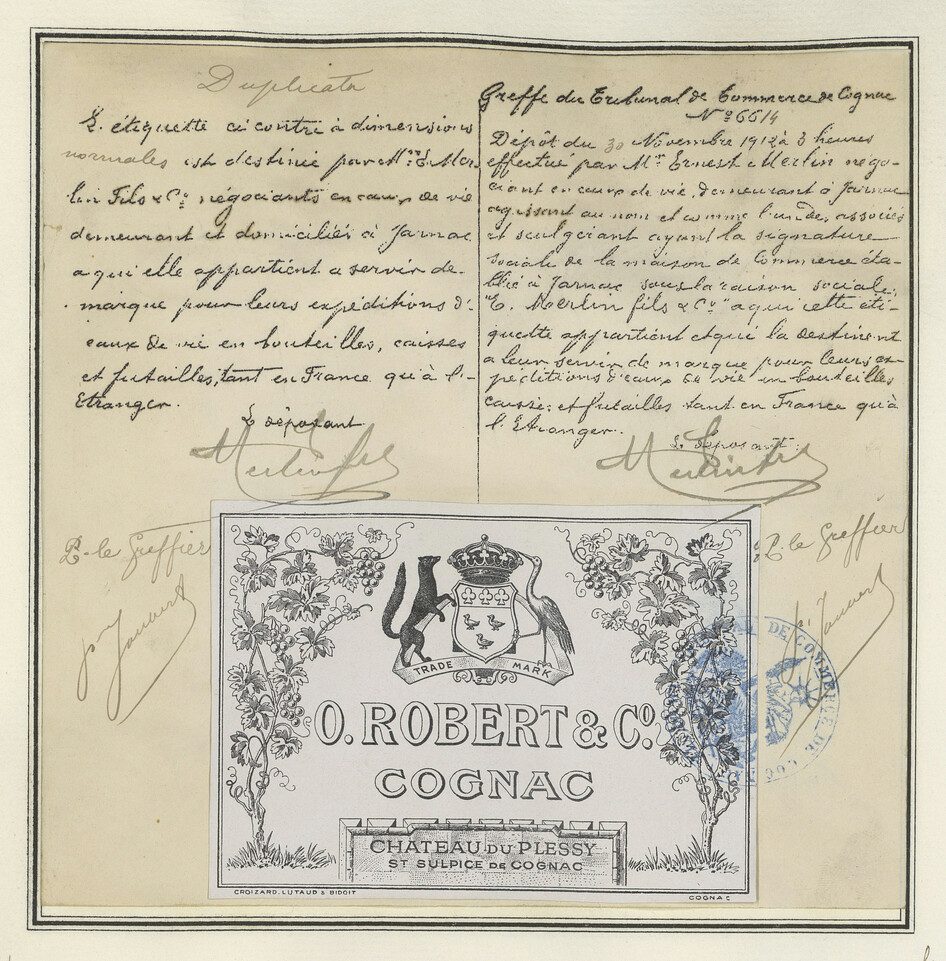 Duplicata
L'étiquette ci contre à dimensions
normales est destinée par M.rs E. Mer-
lin Fils & C.ie négociants en eaux de vie
demeurant et domiciliés à Jarnac
a qui elle appartient a servir de
marque pour leurs expéditions d'
eaux de vie en bouteilles, caisses
et futailles, tant en France qu'à l'-
Etranger.
Le déposant
Merlin fils
P. le Greffier
Greffe du Tribunal de Commerce de Cognac
N° 6614
Dépôt du 30 Novembre 1912 à 3 heures
effectué par M.r Ernest Merlin négo-
ciant en eaux de vie, demeurant à Jarnac
agissant au nom et comme l'un des associés
et seul gérant ayant la signature
sociale de la maison de Commerce éta-
blie à Jarnac sous la raison sociale:
"E. Merlin fils & C.ie" a qui cette éti-
quette appartient et qui la destinent
a leur servir de marque pour leurs ex-
péditions d'eaux de vie en bouteilles
caisses et futailles tant en France qu'à
l'Etranger.
Le déposant:
Merlin fils
P. le Greffier
TRADE MARK
O. ROBERT & C°.
COGNAC
CHATEAU DU PLESSY
ST SULPICE DE COGNAC
CROIZARD, LUTAUD & BIDOIT
COGNAC
DE COMMERCE DE COG